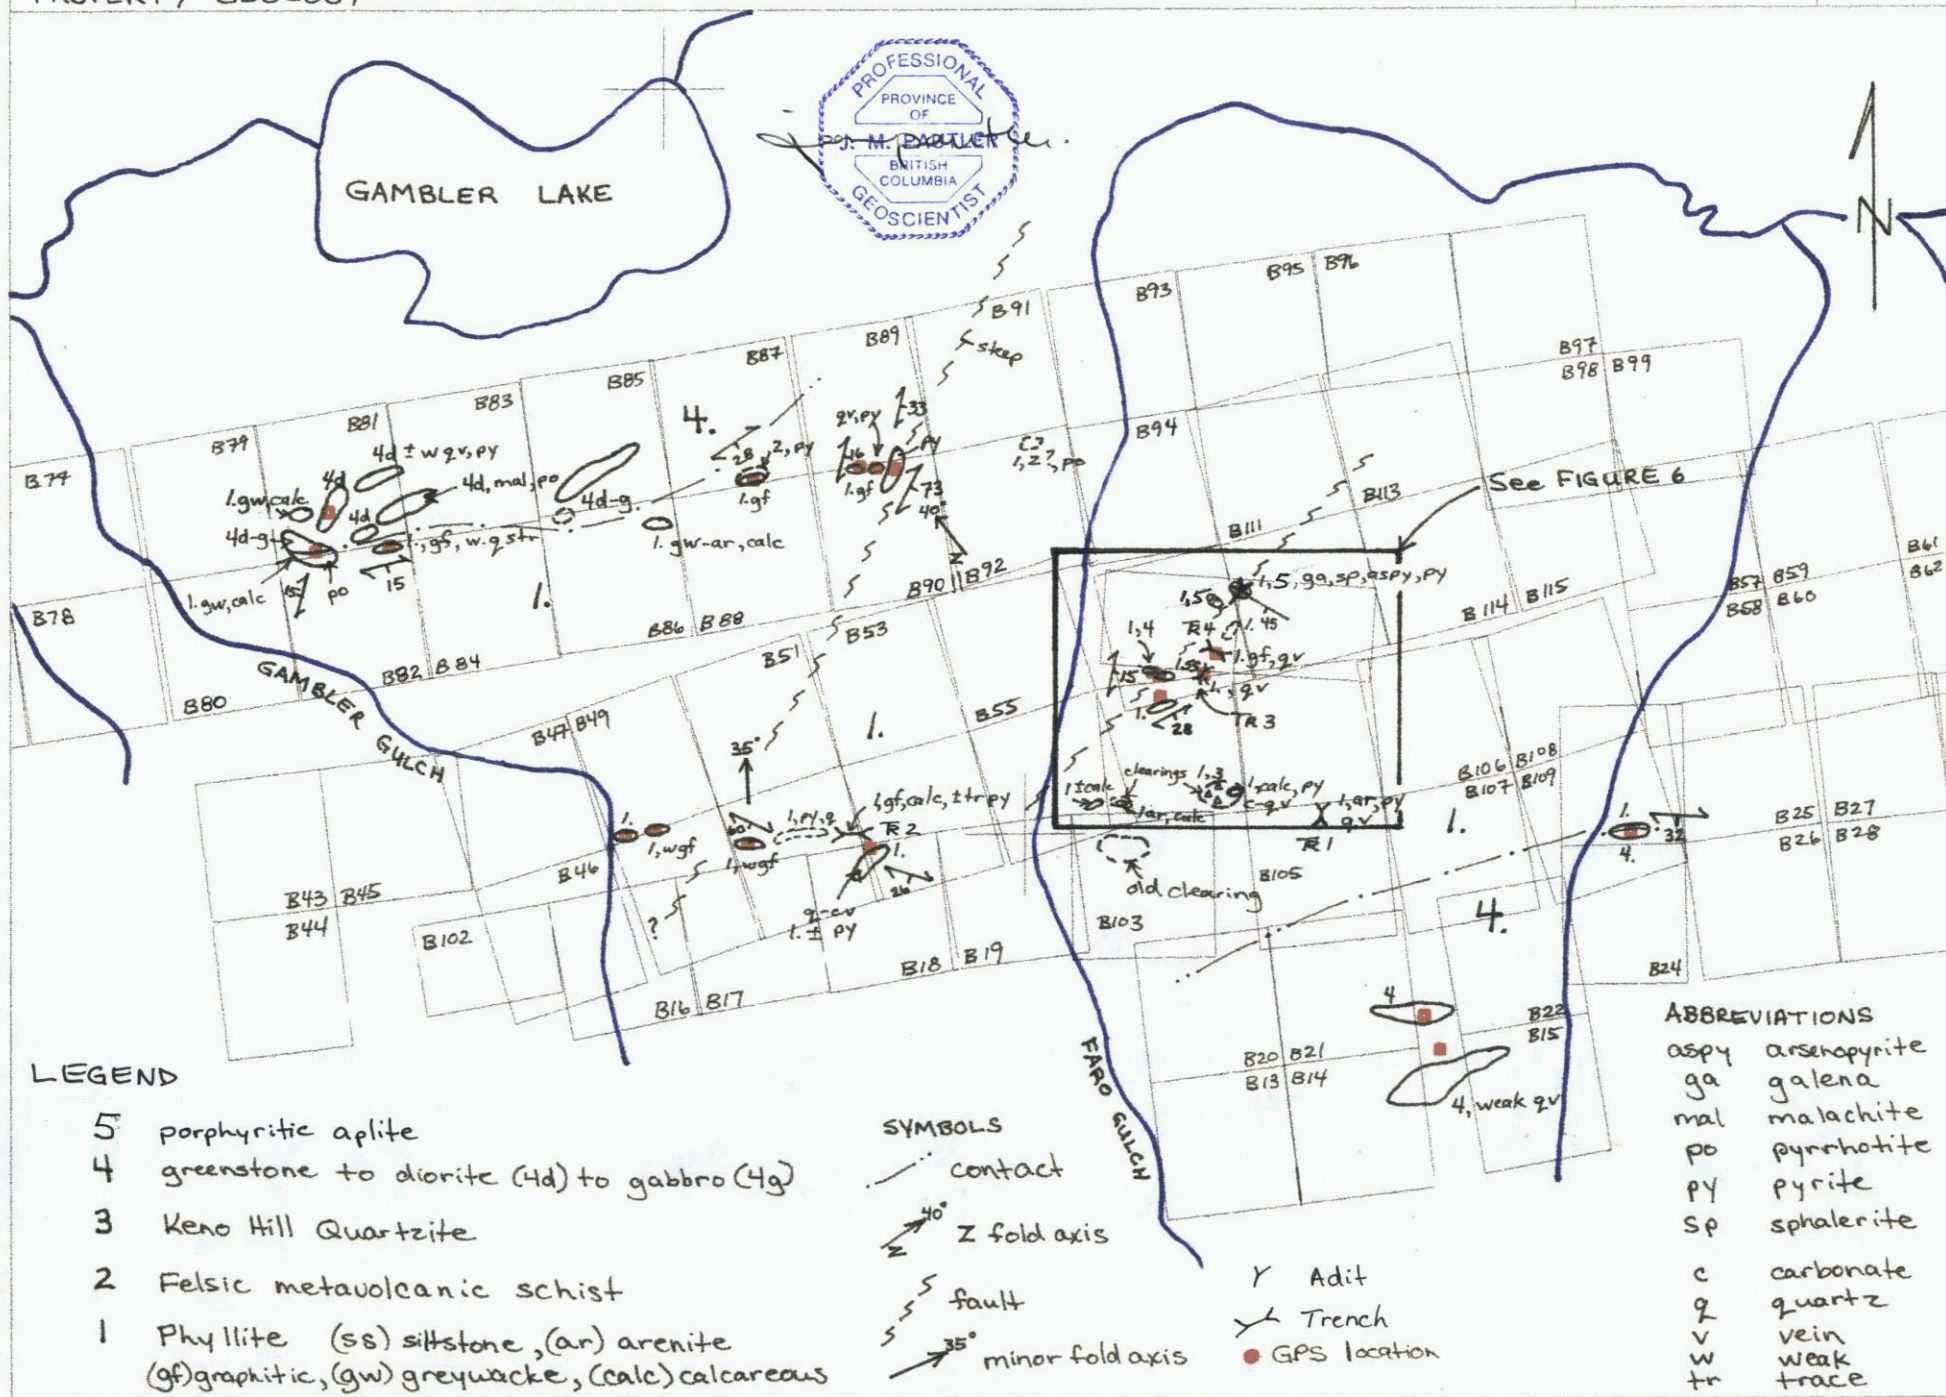 PROPERTY GEOLOGY
PROFESSIONAL
PROVINCE
OF
J. M. PAUTLER
BRITISH
COLUMBIA
GEOSCIENTIST
GAMBLER LAKE
N
B95 B96
B93
B91
steep
B89
B87
B85
B83
B81
B79
B77
B97
B98 B99
B94
4.
33
qv,py
py
28
2, py
16
1.gf
1.gf
73
40°
Z
1,2?,po
4d ± w qv, py
4d
4d, mal, po
1.gw,calc
4d
4d-g
4d-g
1, gf, w.q str
1. gw-ar, calc
po
15
15
1.gw, calc
1.
See FIGURE 6
B113
B111
B61
B62
B57 B59
B58 B60
B114 B115
B90 B92
B78
B86 B88
B53
B51
B82 B84
B80
B55
B47 B49
GAMBLER GULCH
1,5, ga, sp, aspy, py
1,5
1. 45
1,4
TR4
1.gf, qv
15
1., qv
1.
28
TR3
1.
35°
clearings
1,3
1.calc, py
c-qv
1±calc
1ar, calc
1, ar, py
qv
TR1
B106 B108
B107 B109
1.
1.
32
4.
B25 B27
B26 B28
1.
1, wgf
60
1, wgf
1, py, q
1, gf, calc, ± tr py
TR2
1.
26
q-cv
1. ± py
old clearing
B105
B103
B46
B43 B45
B44
B102
?
B18 B19
B16 B17
4.
B24
4
B22
B15
B20 B21
B13 B14
4, weak qv
FARO GULCH
LEGEND
5 porphyritic aplite
4 greenstone to diorite (4d) to gabbro (4g)
3 Keno Hill Quartzite
2 Felsic metavolcanic schist
1 Phyllite (ss) siltstone, (ar) arenite
(gf) graphitic, (gw) greywacke, (calc) calcareous
SYMBOLS
contact
40° Z Z fold axis
fault
35° minor fold axis
Adit
Trench
GPS location
ABBREVIATIONS
aspy arsenopyrite
ga galena
mal malachite
po pyrrhotite
py pyrite
sp sphalerite
c carbonate
q quartz
v vein
w weak
tr trace